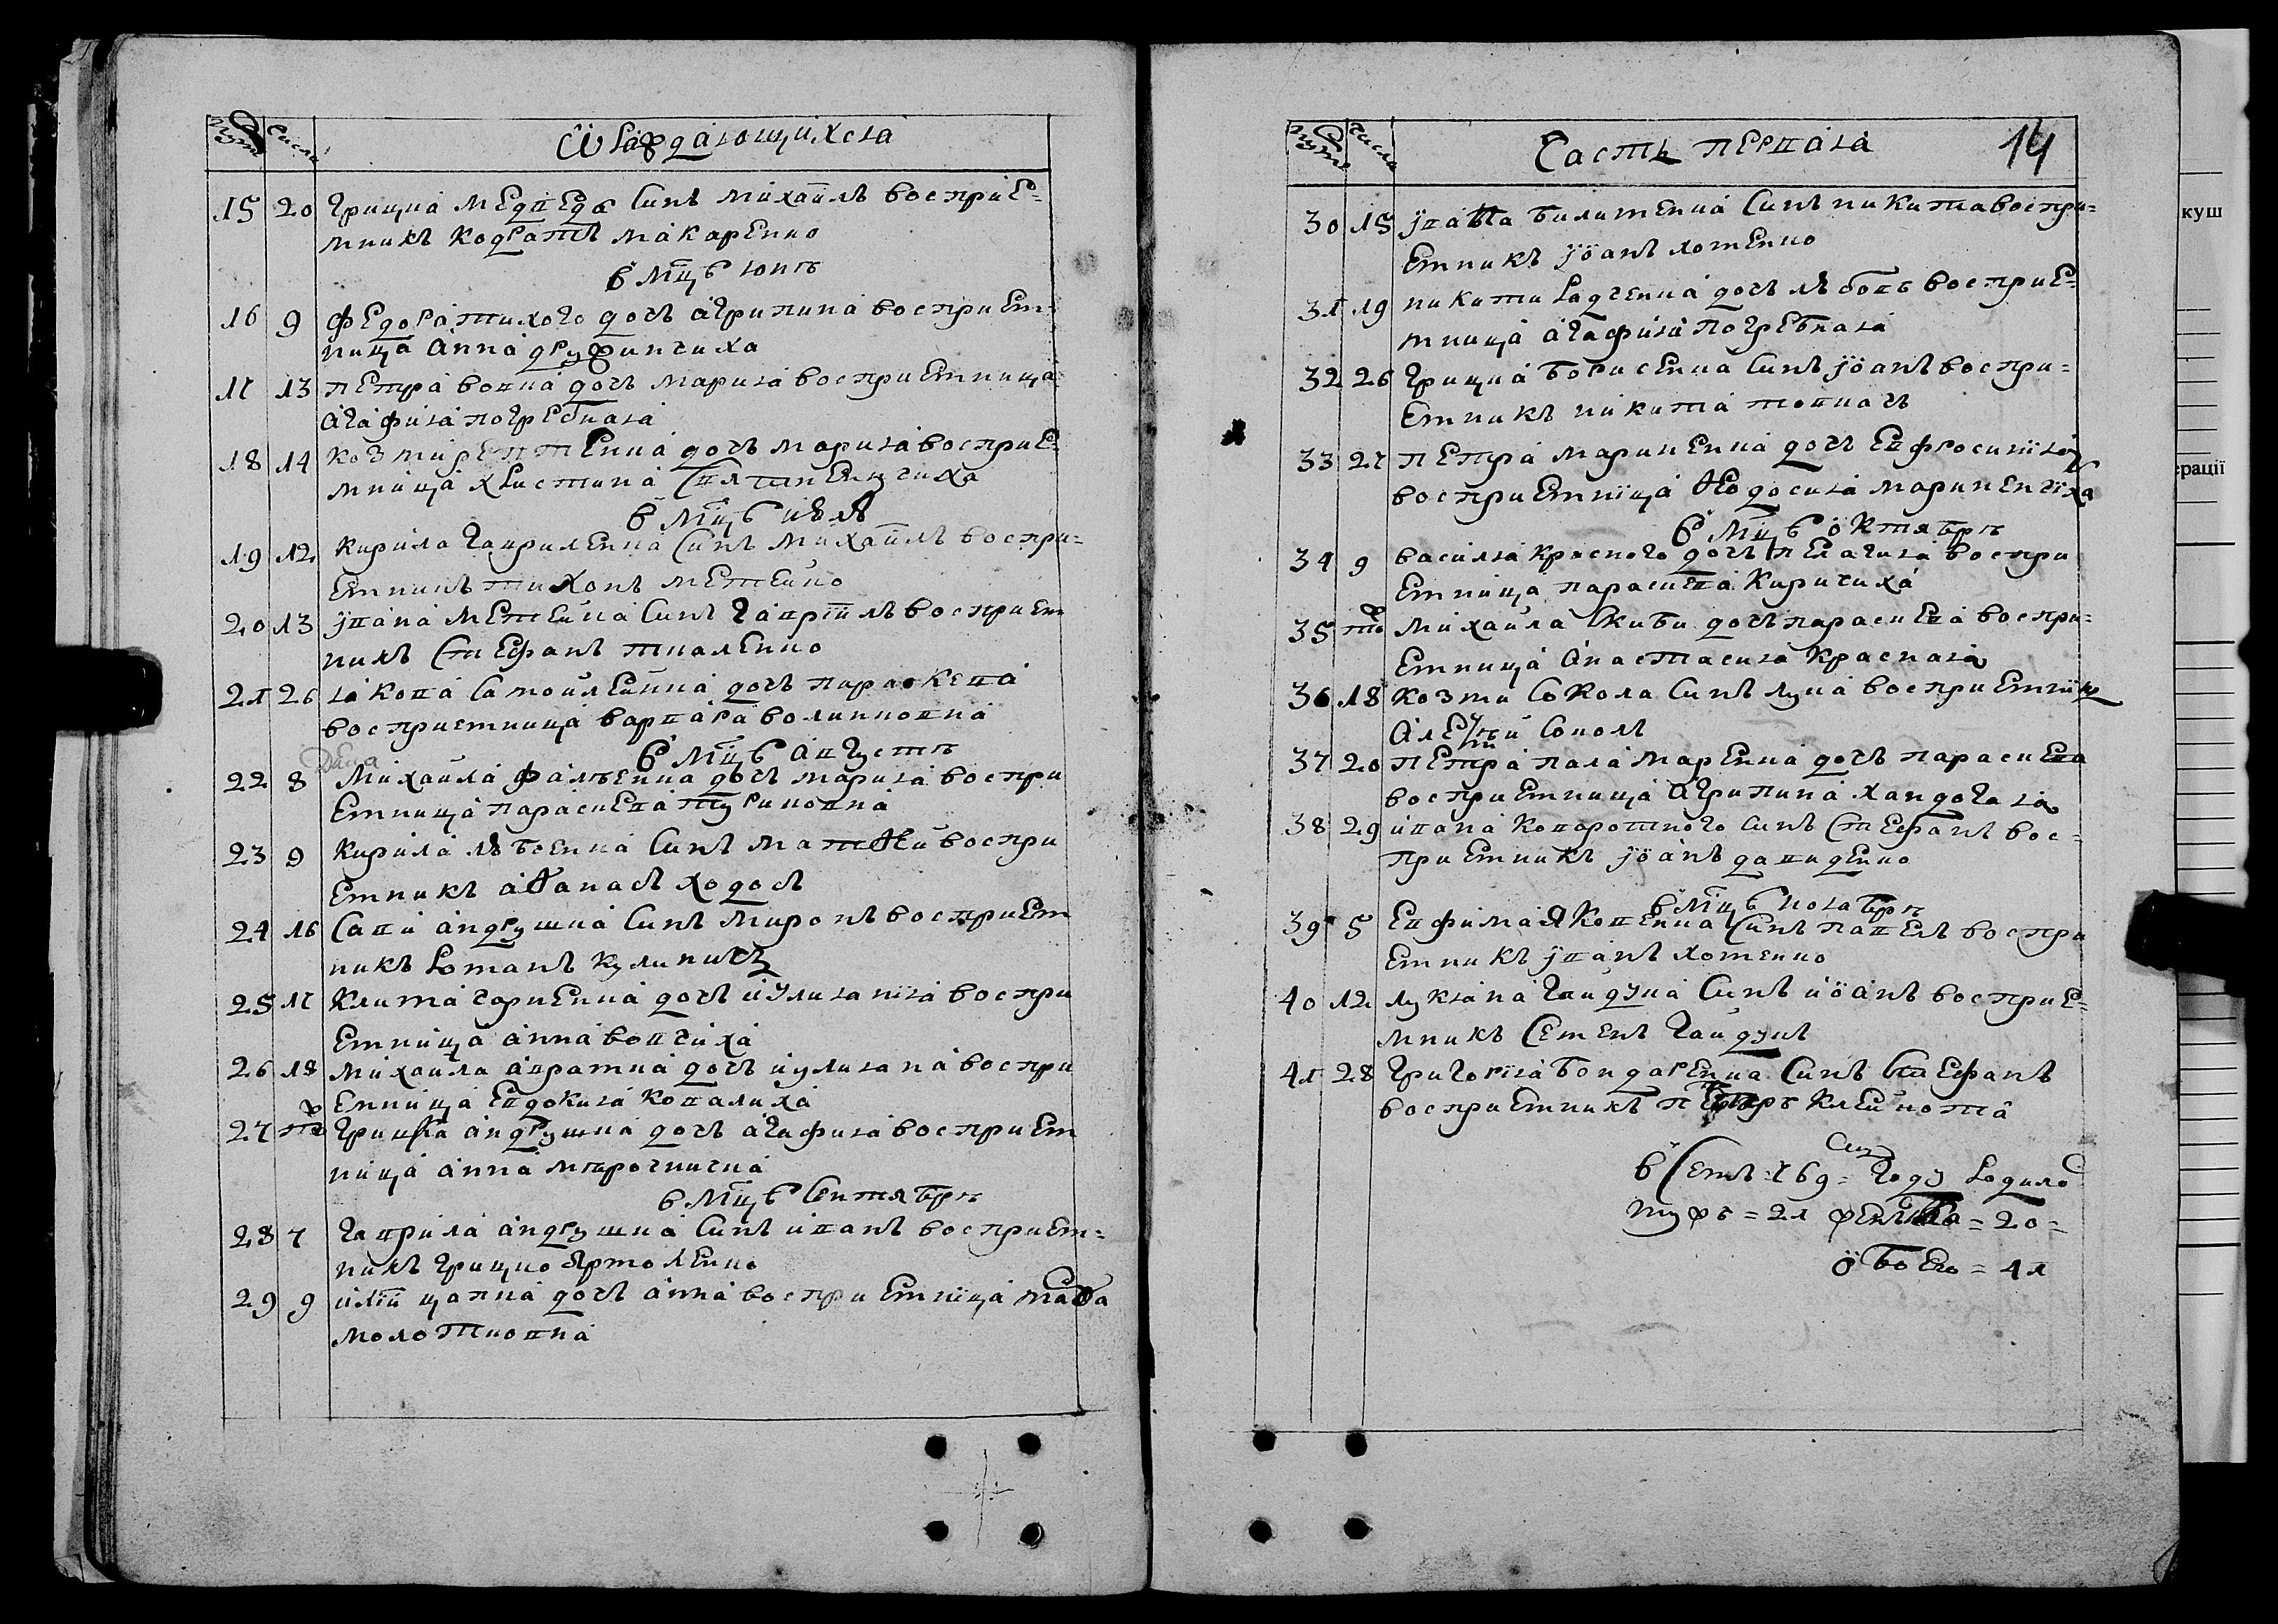 Счет Число Ѿ раждающихся
15 20 Грицка Медведя синъ Михаилъ восприе=
мникъ Кодратъ Макаренко
в мцѣ юнѣ
16 9 Федора Тихого дочъ Агрипина восприем=
ница Анна
17 13 Петра Вовка дочъ Мария восприемница
Агафия Погребная
18 14 дочъ Мария восприе=
мница Христина
в мцѣ июлѣ
19 12 Кирила Гавриленка синъ Михаилъ воспри=
емникъ Тихонъ Метейко
20 13 Івана Метейка синъ Гавріилъ восприем
никъ Стефанъ Ткаленко
21 26 Якова Самойленка дочъ Параскева
восприемница Варвара Воликовна
в мцѣ августѣ
22 8 Михайла дочъ Мария воспри
емница Параскева
23 9 Кирила синъ Матѳей воспри
емникъ Аѳанасъ Ходосъ
24 16 Сави Андрушка синъ Миронъ восприем
никъ Романъ Кулиничъ
25 17 Клима дочъ иулияния воспри
емница Анна Вовчиха
26 18 Михайла дочъ иулияна воспри
емница Евдокия Ковалиха
27 то Грицка Андрушка дочъ Агафия восприем
ница Анна
в мцѣ сентябрѣ
28 7 Гаврила Андрушка синъ иванъ восприем=
никъ Грицко Ярмоленко
29 9 илїи Цапка дочъ Анна восприемница
Молотковна
Счет Число Часть первая 14
30 15 Івана синъ Никита воспри=
емникъ Іоанъ Хоменко
31 19 Никити Радченка дочъ Любовъ восприе=
мница Агафия Погребная
32 26 Грицка Борисенка синъ Іоанъ воспри=
емникъ Никита Товкачъ
33 27 Петра Мариненка дочъ Евфросинїя
восприемнїца Ѳеодосия Мариненчїха
в мцѣ октябрѣ
34 9 Василия Красного дочъ Пелагия воспри
емница Параскева Киричиха
35 то Михайла Скиби дочъ Параскева воспри=
емница Анастасия Красная
36 18 Козми Сокола синъ Лука восприемникъ
Алексѣй Соколъ
37 20 Петра Паламаренка дочъ Параскева
восприемница Агрипина Хандогая
38 29 ивана Коваротного синъ Стефанъ вос=
приемникъ Іоанъ Давиденко
в мцѣ ноябрѣ
39 5 Евфима Яковенка синъ Павелъ воспри
емникъ Іванъ Хоменко
40 12 Лукяна Гайдука синъ иоанъ восприе=
мникъ Семенъ Гайдукъ
41 28 Григория Бондаренка синъ Стефанъ
восприемникъ Петръ Клейнота
в Семъ 769= году родило Сия
муж = 21 женска = 20=
обоего = 41
куш
ерації